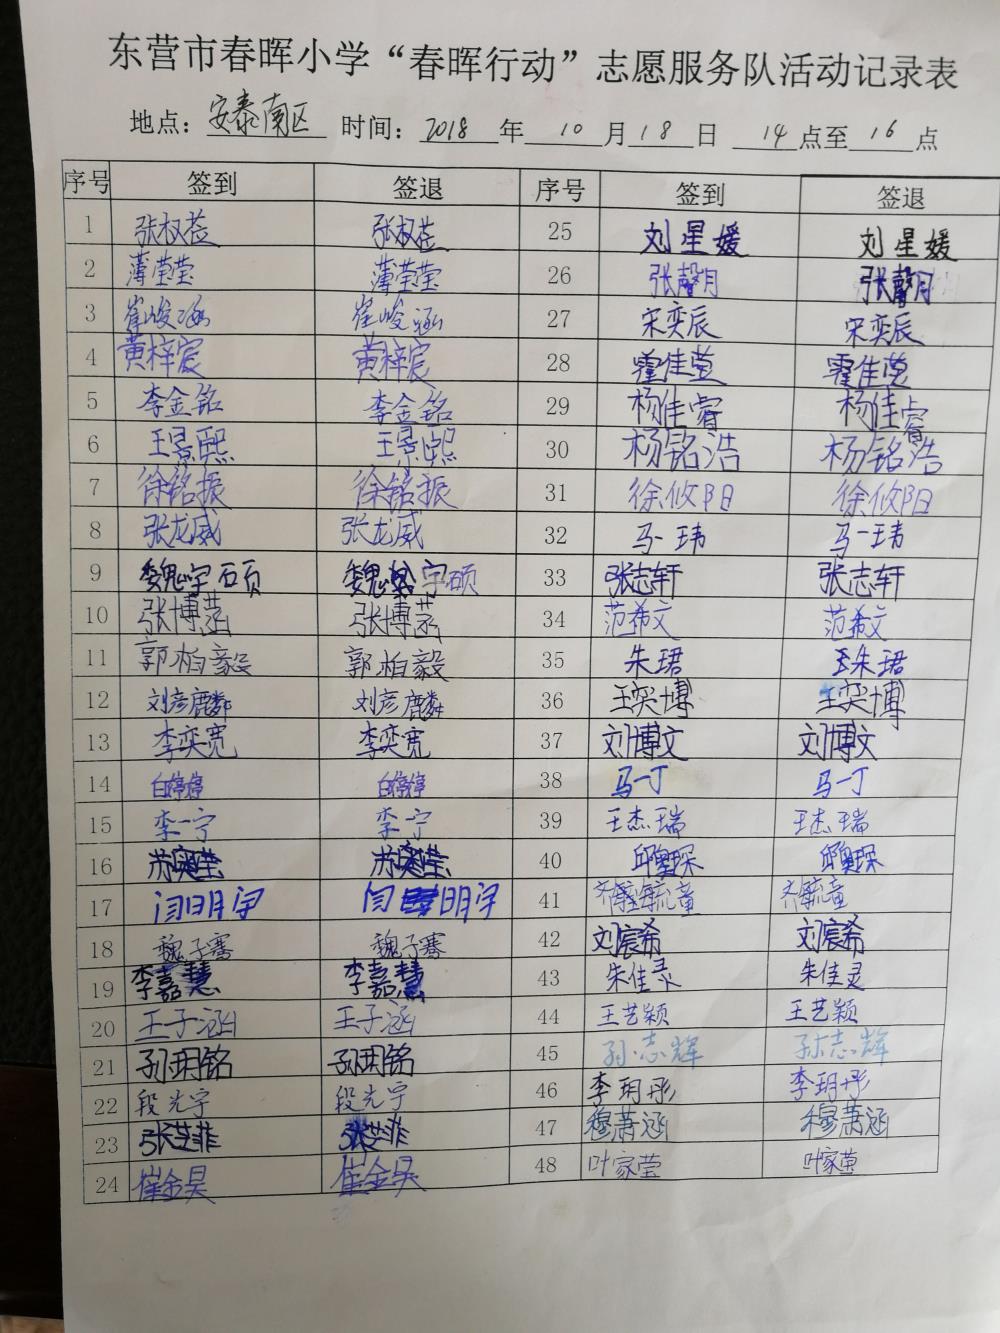 东营市春晖小学“春晖行动”志愿服务队活动记录表
地点：安泰南区 时间：2018年10月18日 14点至16点
序号 签到 签退 序号 签到 签退
1 张权 张权 25 刘星媛 刘星媛
2 薄莹莹 薄莹莹 26 张馨月 张馨月
3 崔峻涵 崔峻涵 27 宋奕辰 宋奕辰
4 黄梓宸 黄梓宸 28 霍佳莹 霍佳莹
5 李金铭 李金铭 29 杨佳睿 杨佳睿
6 王景熙 王景熙 30 杨铭浩 杨铭浩
7 徐铭振 徐铭振 31 徐攸阳 徐攸阳
8 张龙威 张龙威 32 马一玮 马一玮
9 魏宇硕 魏宇硕 33 张志轩 张志轩
10 张博菡 张博菡 34 范希文 范希文
11 郭柏毅 郭柏毅 35 朱珺 朱珺
12 刘彦麟 刘彦麟 36 王奕博 王奕博
13 李奕宽 李奕宽 37 刘博文 刘博文
14 白婷婷 白婷婷 38 马一丁 马一丁
15 李一宁 李一宁 39 王杰瑞 王杰瑞
16 苏奕莹 苏奕莹 40 邱琛 邱琛
17 闫明宇 闫明宇 41 齐毓童 齐毓童
18 魏子骞 魏子骞 42 刘宸希 刘宸希
19 李嘉慧 李嘉慧 43 朱佳灵 朱佳灵
20 王子涵 王子涵 44 王艺颖 王艺颖
21 孙铭 孙铭 45 孙志辉 孙志辉
22 段光宇 段光宇 46 李玥彤 李玥彤
23 张芷菲 张芷菲 47 穆萧涵 穆萧涵
24 崔金昊 崔金昊 48 叶家莹 叶家莹